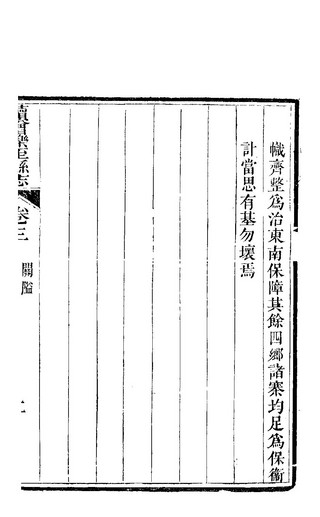 幟齊整爲治東南保障其餘四鄉諸寨均足爲保衛
計當思有基勿壞焉
縣志
卷之三
關隘